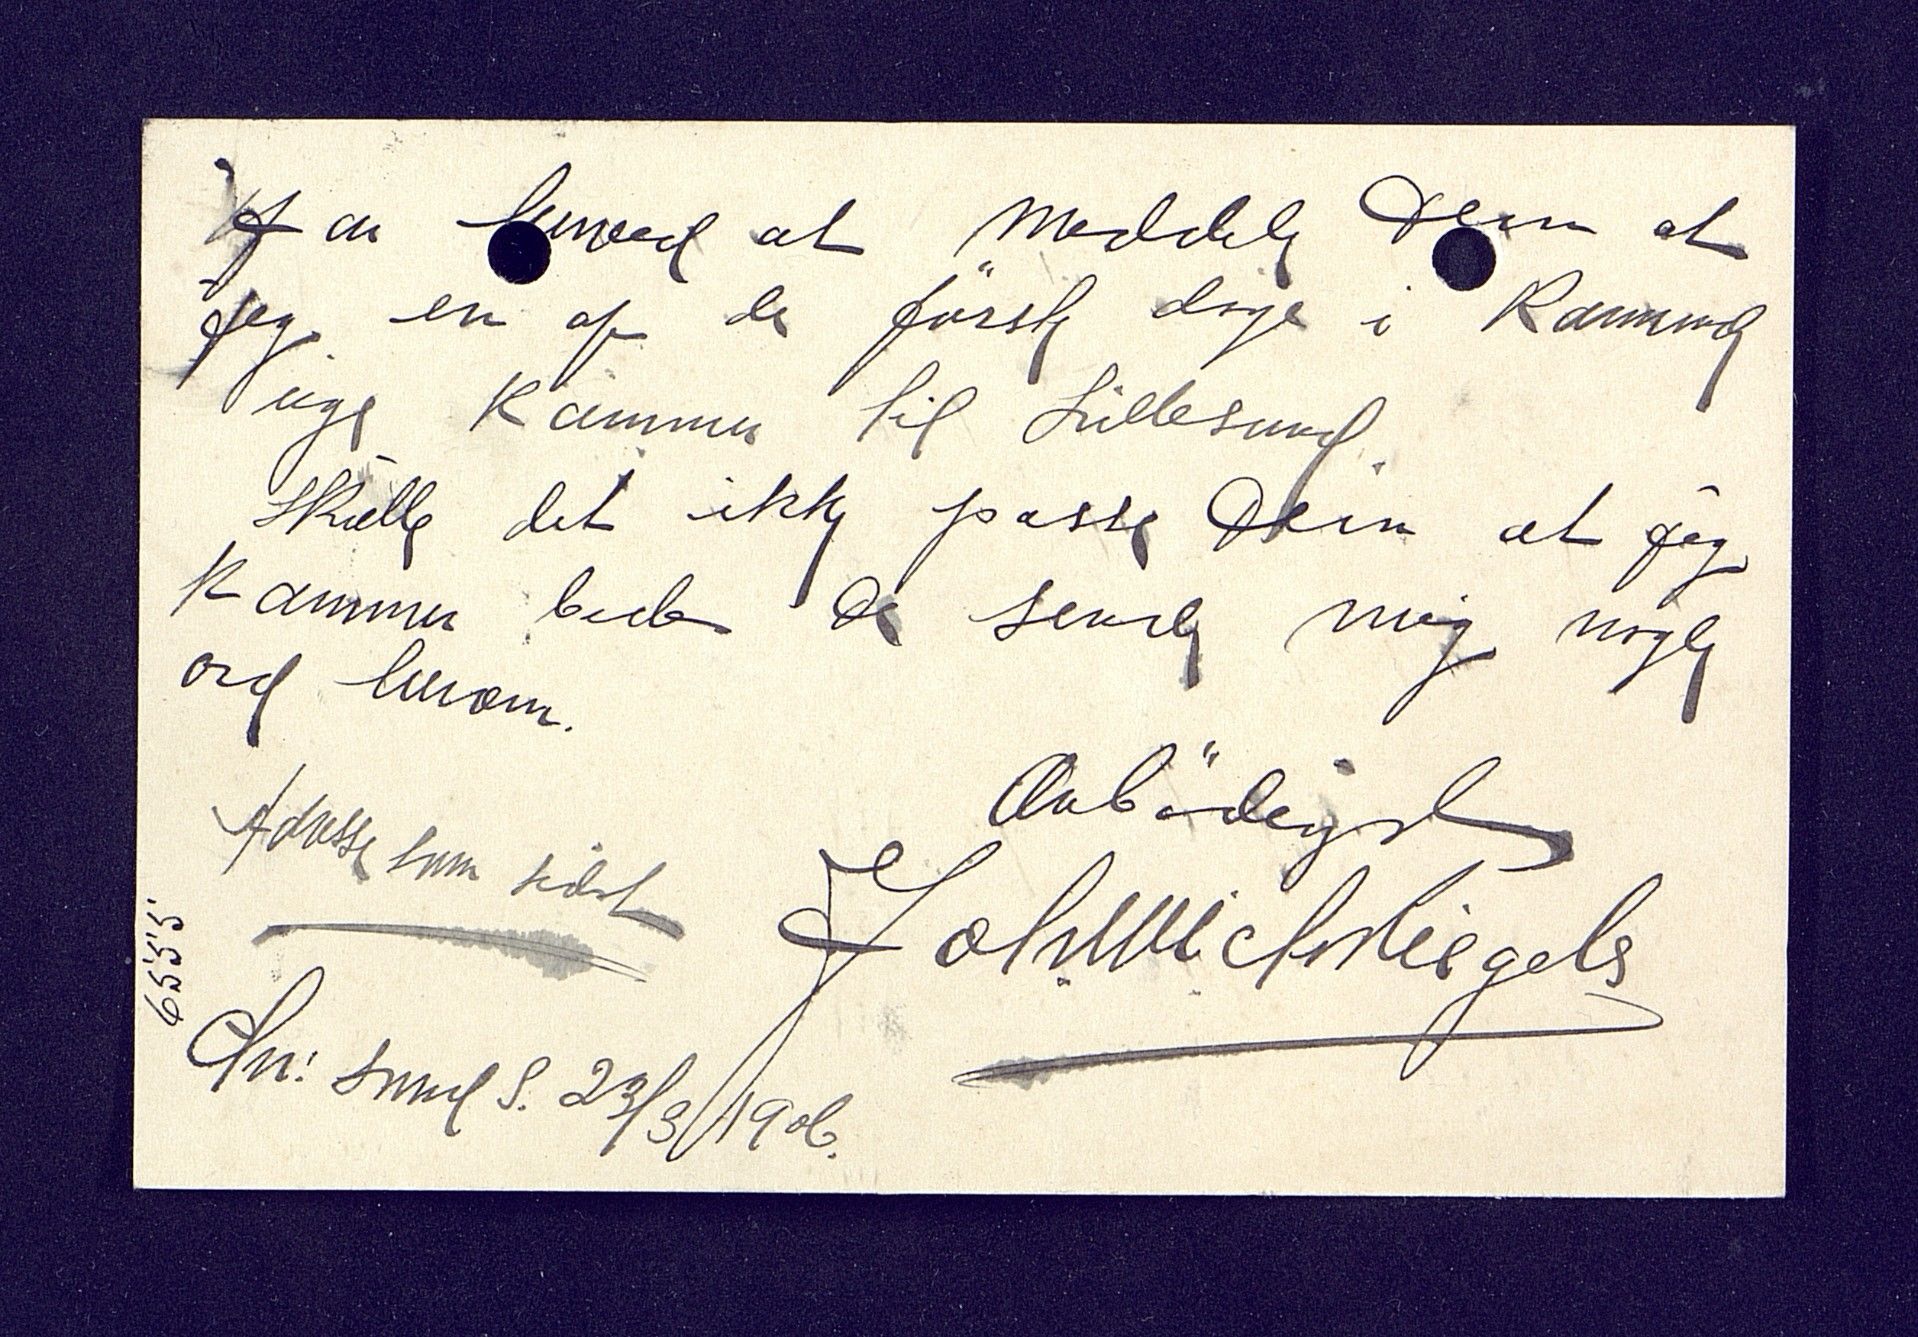 Får herved at meddele Dem at
jeg en af de første dage i Kommende
uge Kommer til Lillesund.
Skulle det ikke passe Dem at jeg
Kommer bedes De sende mig nogle
ord herom.
Ærbödigst
Adresse som sidst
Joh.
Chr: sund S. 23/3 1906.
6555